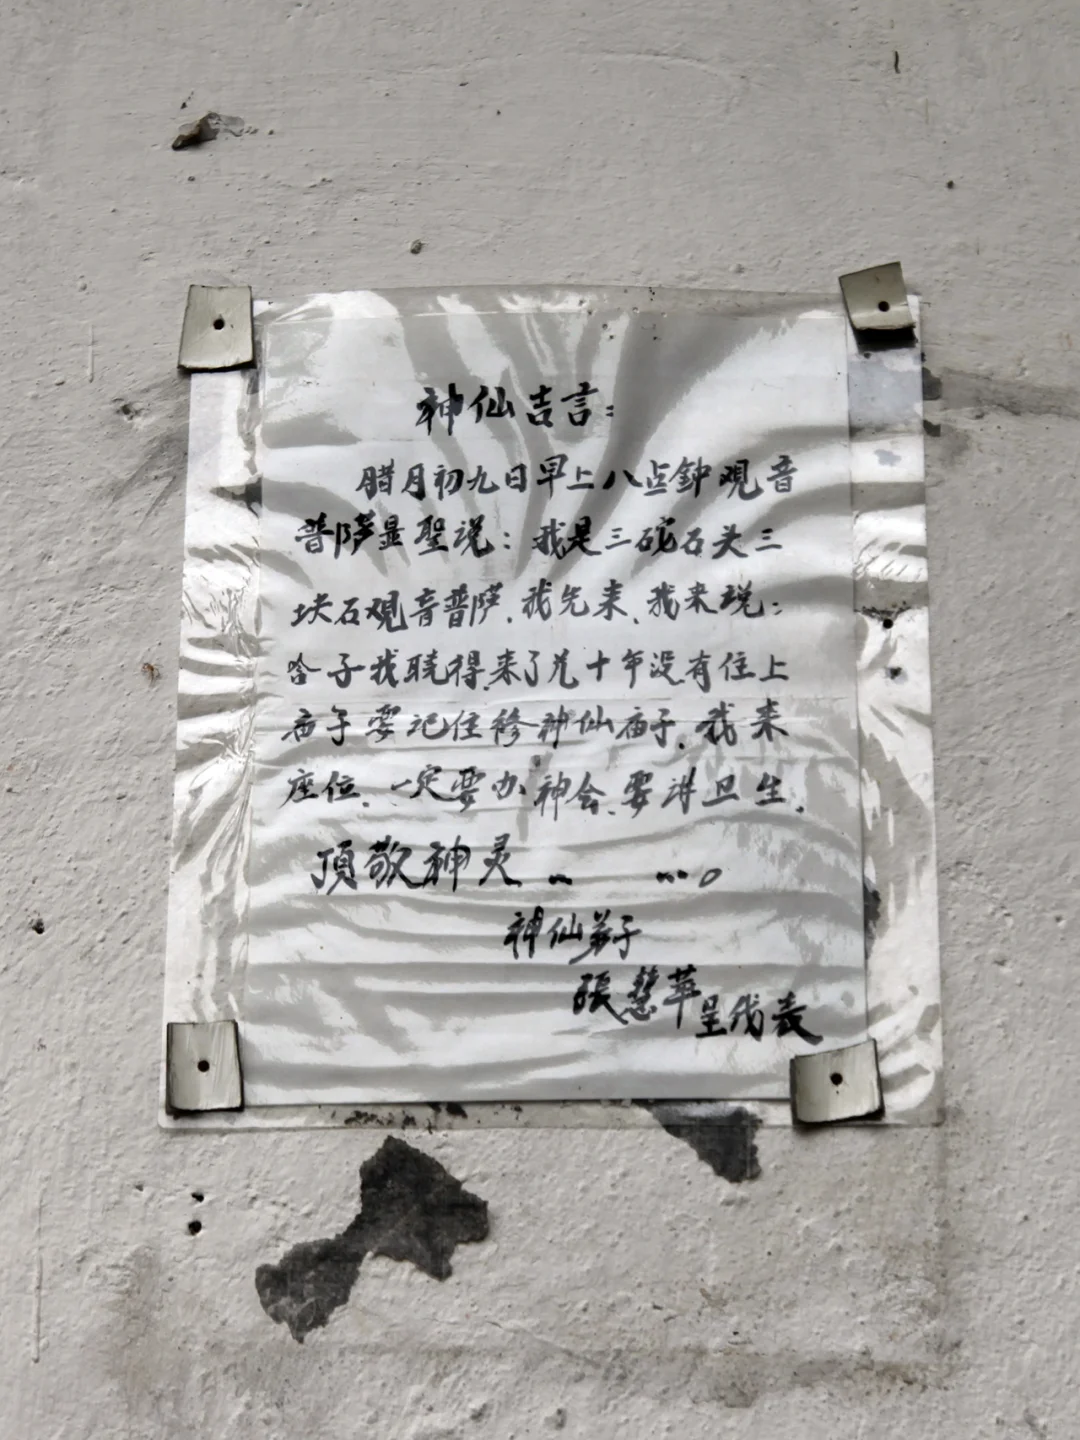 神仙吉言:
腊月初九日早上八点鈡观音
普萨显聖说:我是三碗石头三
块石观音普萨.我先来.我来说:
啥子我晓得.来了几十年没有住上
庙子要记住修神仙庙子.我来
座位.一定要办神会.要讲卫生.
顶敬神灵.. ...。
神仙弟子
張慧苹
呈代表